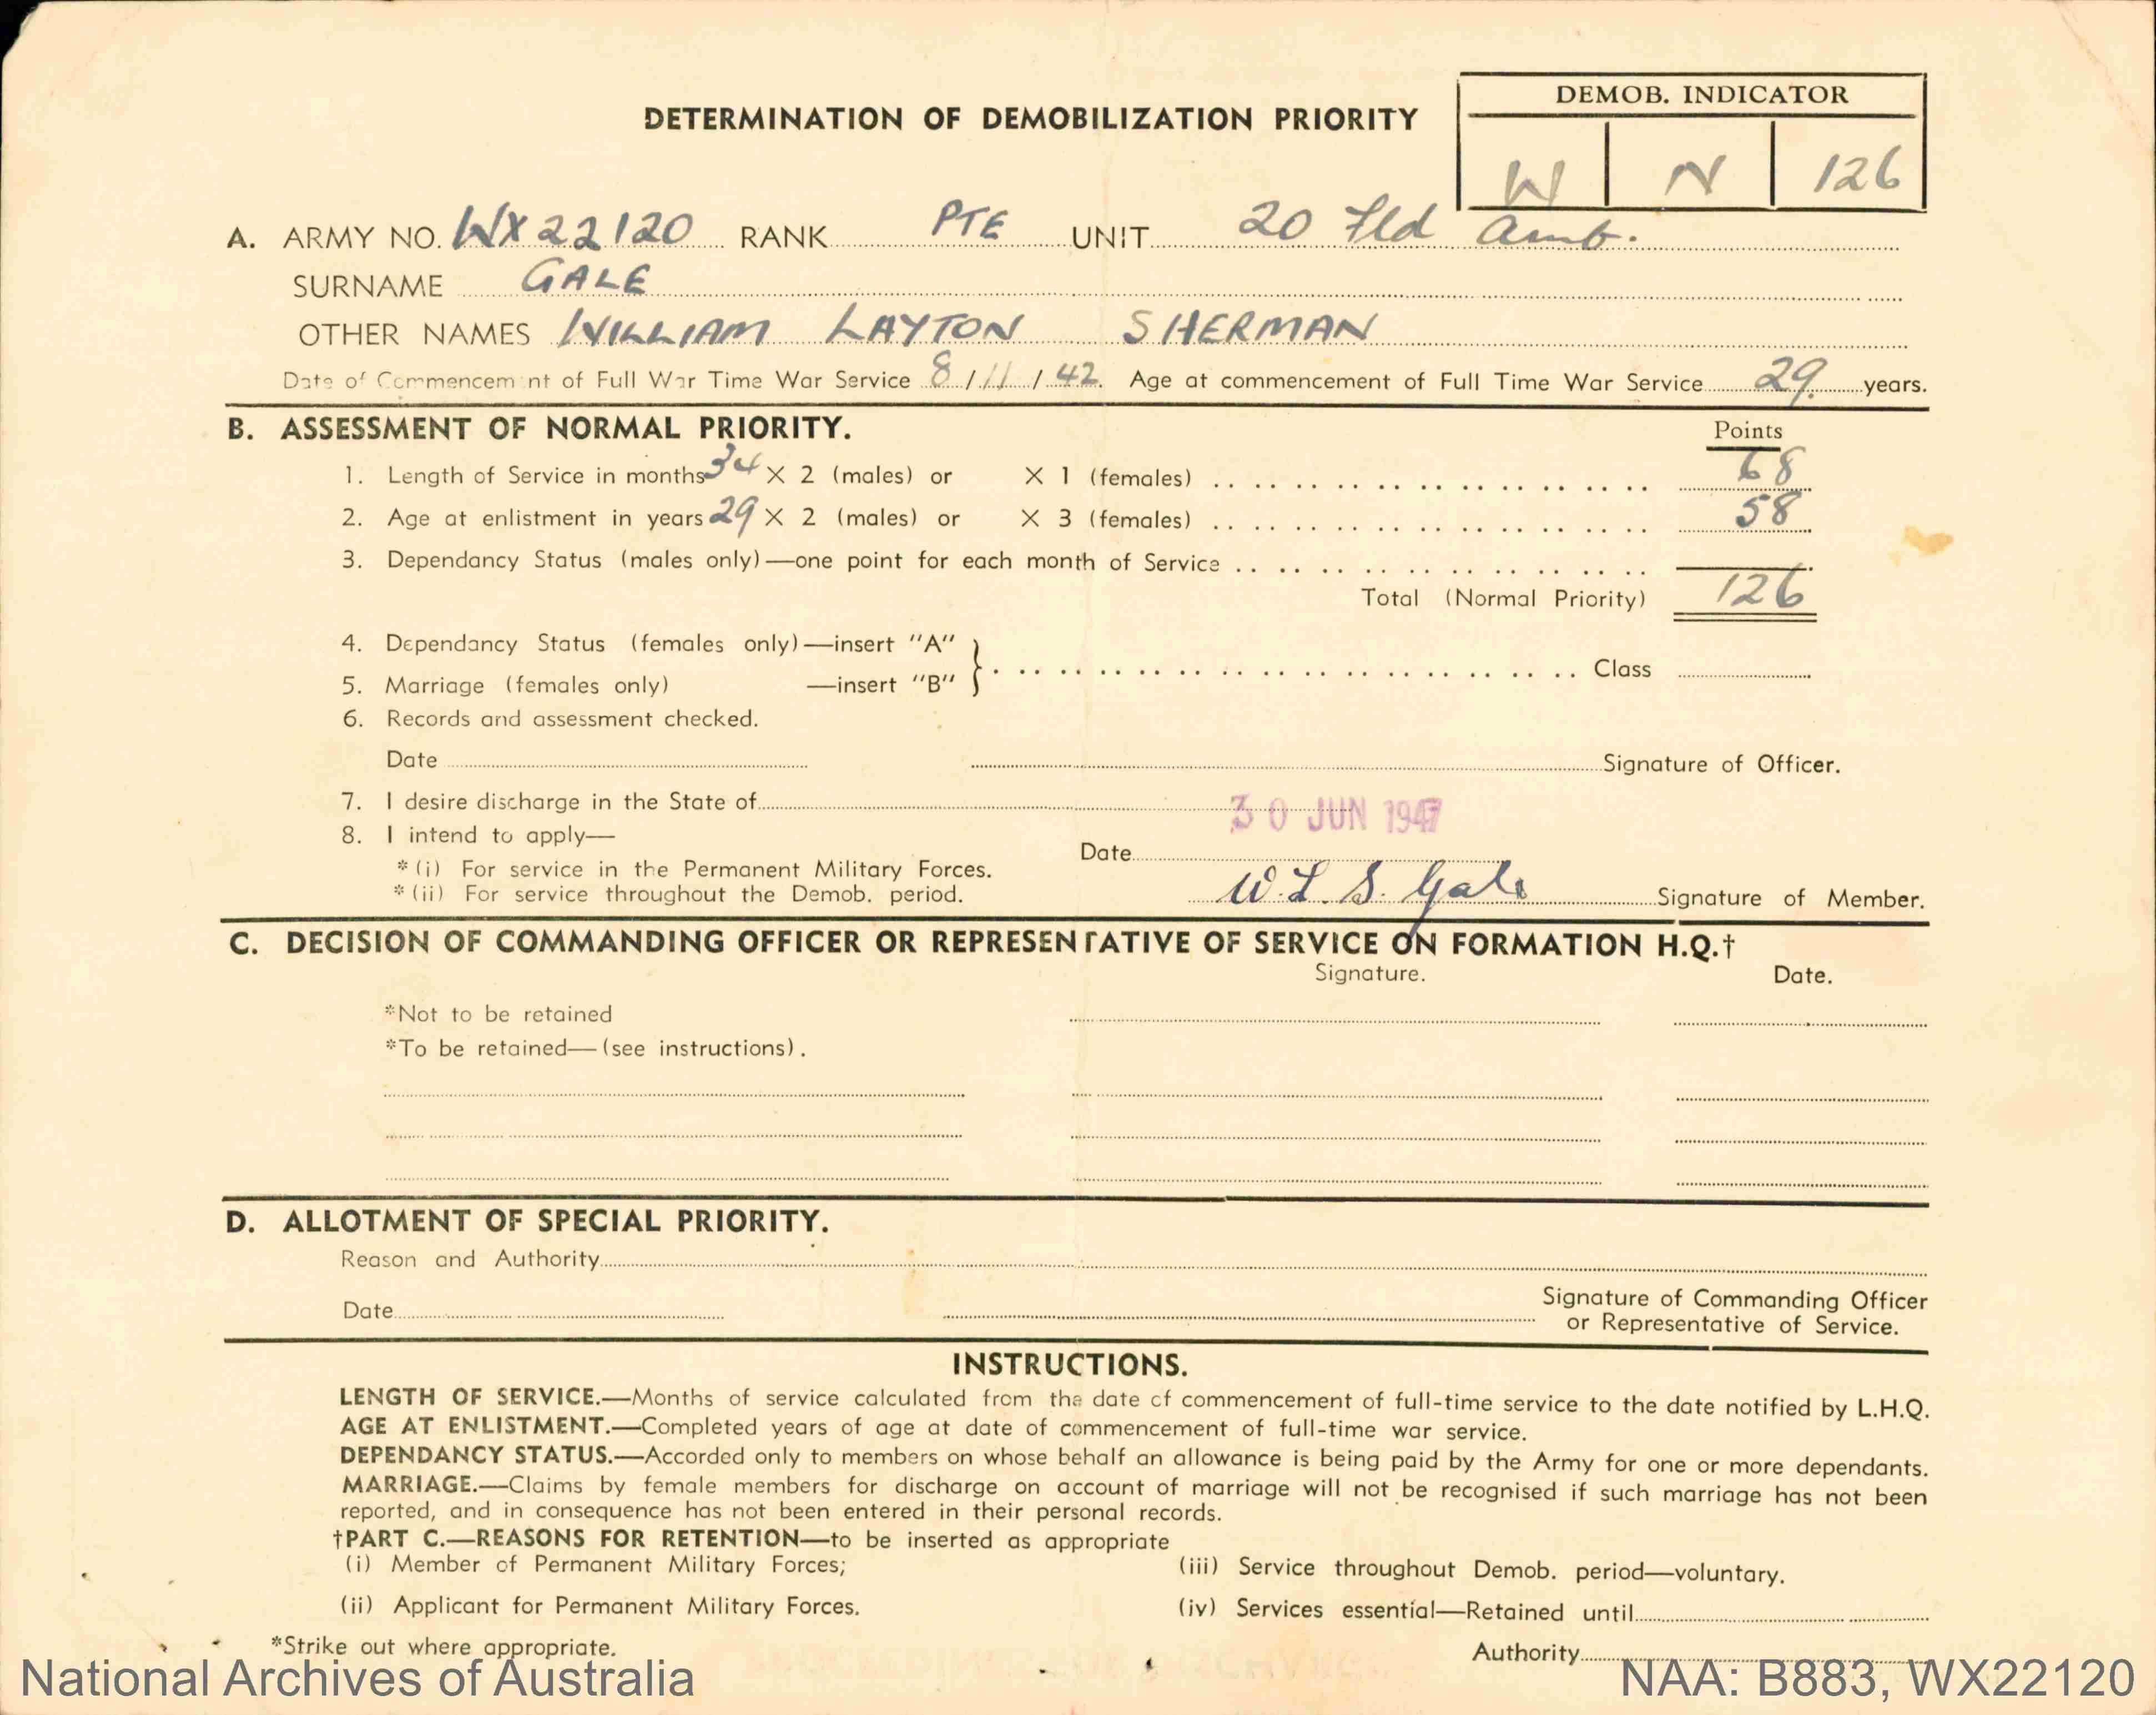 DETERMINATION OF DEMOBILIZATION PRIORITY
DEMOB. INDICATOR
W N 126
A. ARMY NO. WX22120 RANK PTE UNIT 20 Fld Amb.
SURNAME GALE
OTHER NAMES WILLIAM LAYTON SHERMAN
Date of Commencement of Full War Time War Service 8/11/42. Age at commencement of Full Time War Service 29. years.
B. ASSESSMENT OF NORMAL PRIORITY.
Points
1. Length of Service in months 34 X 2 (males) or X 1 (females) 68
2. Age at enlistment in years 29 X 2 (males) or X 3 (females) 58
3. Dependancy Status (males only)—one point for each month of Service
Total (Normal Priority) 126
4. Dependancy Status (females only)—insert "A"
Class
5. Marriage (females only) —insert "B"
6. Records and assessment checked.
Date Signature of Officer.
7. I desire discharge in the State of
8. I intend to apply—
30 JUN 1947
Date
*(i) For service in the Permanent Military Forces.
*(ii) For service throughout the Demob. period.
W. L. S. Gale Signature of Member.
C. DECISION OF COMMANDING OFFICER OR REPRESENTATIVE OF SERVICE ON FORMATION H.Q.†
Signature. Date.
*Not to be retained
*To be retained—(see instructions).
D. ALLOTMENT OF SPECIAL PRIORITY.
Reason and Authority
Date
Signature of Commanding Officer
or Representative of Service.
INSTRUCTIONS.
LENGTH OF SERVICE.—Months of service calculated from the date of commencement of full-time service to the date notified by L.H.Q.
AGE AT ENLISTMENT.—Completed years of age at date of commencement of full-time war service.
DEPENDANCY STATUS.—Accorded only to members on whose behalf an allowance is being paid by the Army for one or more dependants.
MARRIAGE.—Claims by female members for discharge on account of marriage will not be recognised if such marriage has not been
reported, and in consequence has not been entered in their personal records.
†PART C.—REASONS FOR RETENTION—to be inserted as appropriate
(i) Member of Permanent Military Forces; (iii) Service throughout Demob. period—voluntary.
(ii) Applicant for Permanent Military Forces. (iv) Services essential—Retained until
*Strike out where appropriate. Authority
National Archives of Australia NAA: B883, WX22120